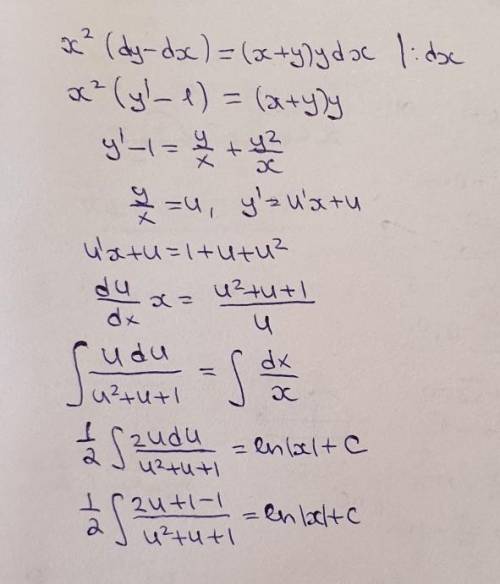 x² (dy-dx) = (x+y)ydx |:dx
x² (y'-1) = (x+y)y
y'-1 = y/x + y²/x
y/x = u, y' = u'x+u
u'x+u = 1+u+u²
du/dx x = (u²+u+1)/u
∫ udu/(u²+u+1) = ∫ dx/x
1/2 ∫ 2udu/(u²+u+1) = ln|x|+C
1/2 ∫ (2u+1-1)/(u²+u+1) = ln|x|+C